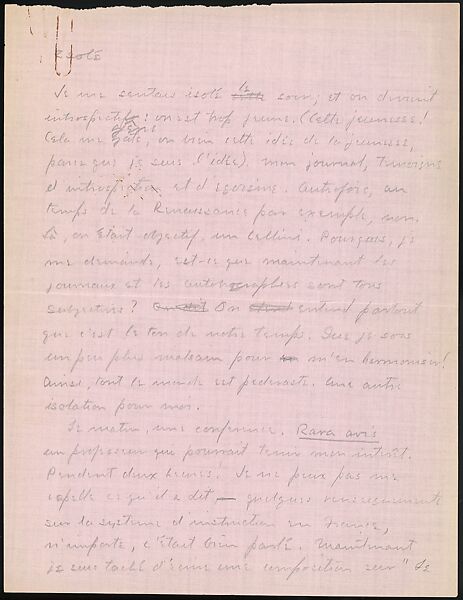 Isolé
Je me sentais isolé le soir; et on devient
introspectif: on est trop jeune. (Cette jeunesse!
Cela me gâte, ou bien cette idée de la jeunesse,
parce que je suis (l'idée). mon journal,
d'introspection et d'egoisme. Autrefois, au
temps de la Renaissance par exemple, non.
Là, on était objectif. un Cellini. Pourquoi, je
me demande, est-ce que maintenant les
journaux et les autobiographies sont tous
subjectifs? On entend partout
que c'est le ton de notre temps. Que je sois
un peu plus moderne pour m'en harmoniser!
Ainsi, tout le monde est pederaste. Une autre
isolation pour moi.
Le matin, une conference. Rara avis
un professeur que pouvait tenir mon intrêt.
Pendant deux heures! Je ne peux pas me
rapelle ce qu'il a dit — quelques renseignements
sur la systeme d'instruction en France,
n'importe, c'était bien parlé. Maintenant
je suis taché d'ecrire une composition sur "Le